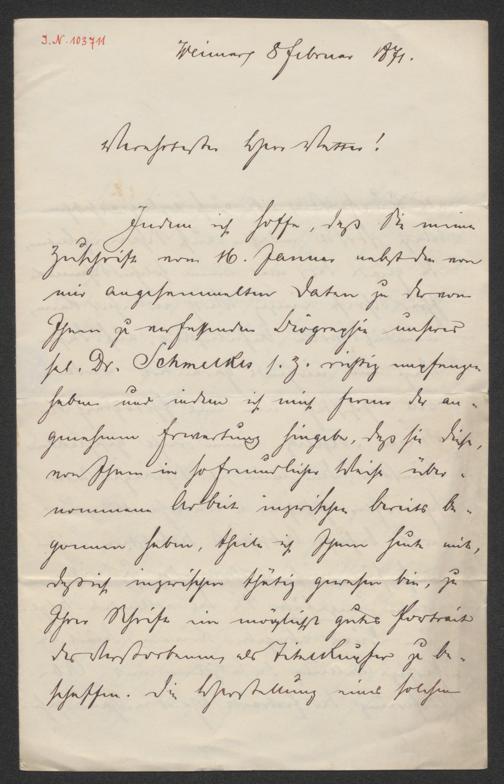 J.N. 103711
Weimar 8 Februar 1871.
Verehrtester Herr Vetter!
Indem ich hoffe, daß Sie meine
Zuschrift vom 16. Januar nebst den von
mir angesammelten Daten zu der von
Ihnen zu verfassenden Biographie unseres
sel. Dr. Schmelkes s. Z. richtig empfangen
haben und indem ich mich ferner der an-
genehmen Erwartung hingebe, daß sie diese,
von Ihnen in so freundlicher Weise über-
nommene Arbeit inzwischen bereits be-
gonnen haben, theile ich Ihnen heute mit,
daß ich inzwischen thätig gewesen bin, zu
Ihrer Schrift ein möglichst gutes Portrait
des Verstorbenen, als Titelkupfer zu be-
schaffen. Die Herstellung eines solchen